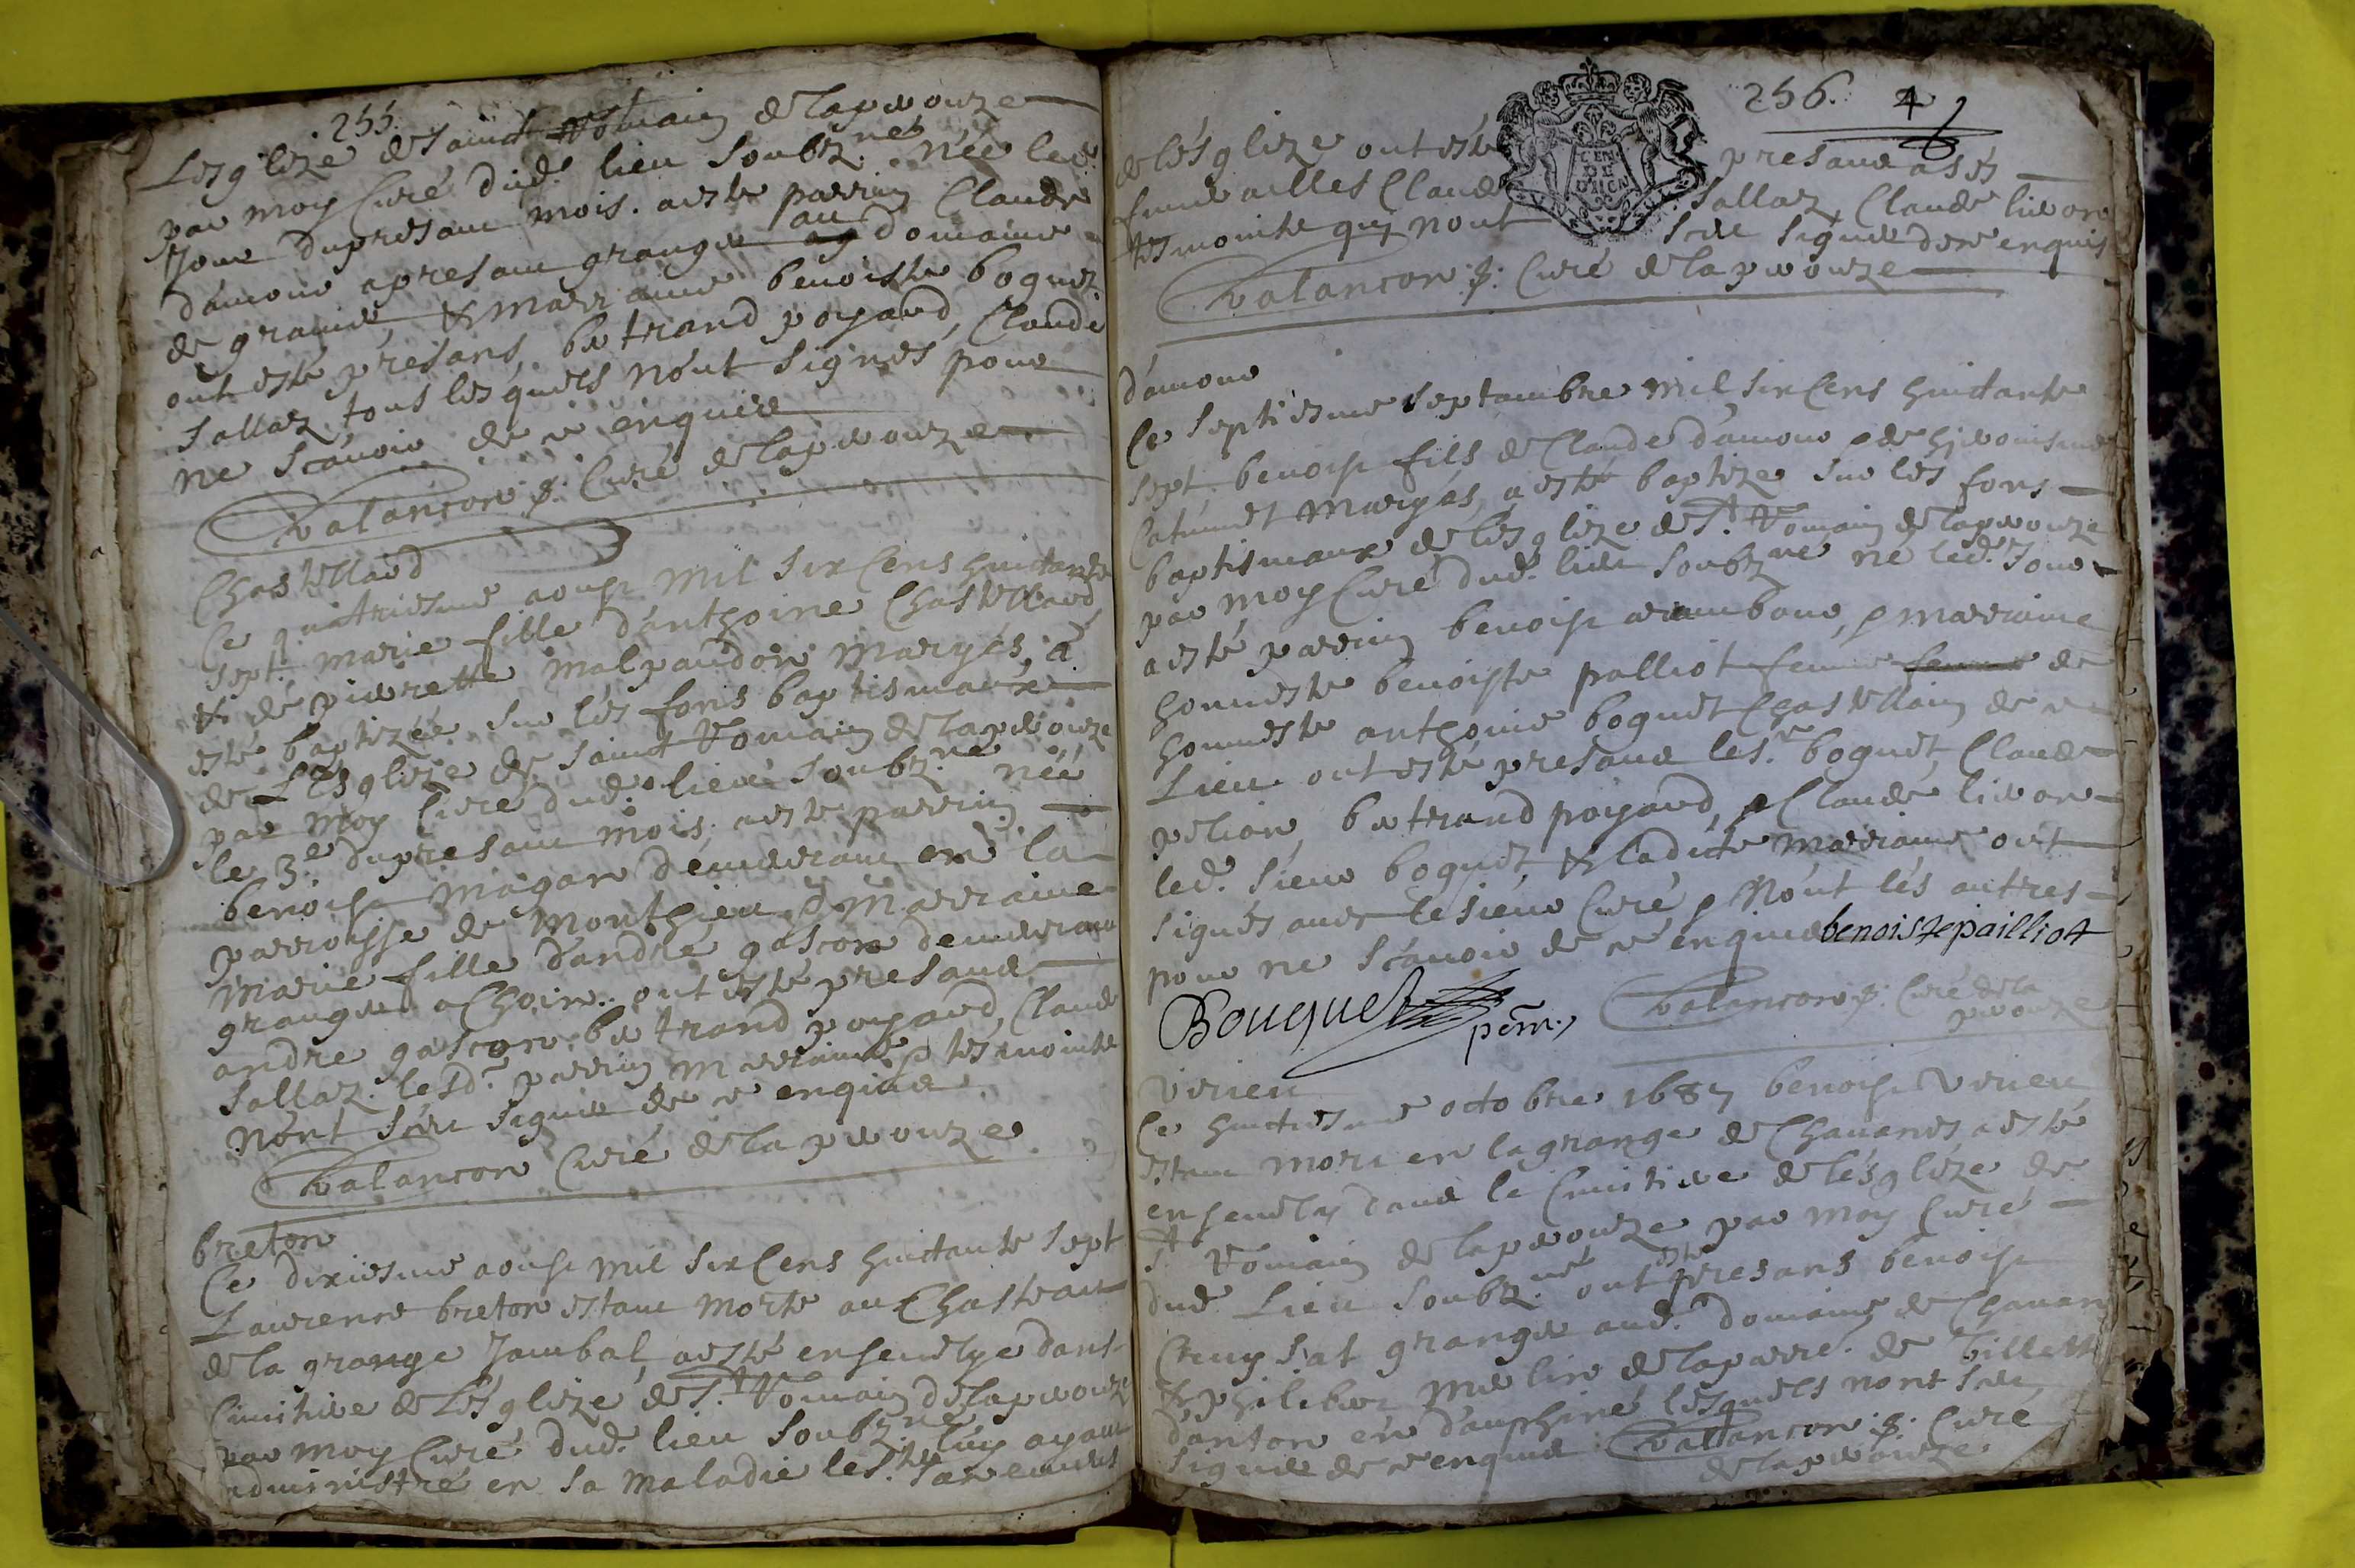 255.
Lesglize de saint Romain de laperouze
par moy Curé dud. lieu soubz.né née led.
Jour dupresant mois. aesté parrin Claude
damour apresant granger au domaine
de grauie, & marraine benoiste boquet
ont esté presans, bertrand poyard, Claude
sallaz tous lesquels nont signés pour
ne scauoir de ce enquire
Balancon p. Curé de laperouze
Chastellard
Ce quatriesme aoust mil six Cens huictante
sept. marie fille danthoine Chastellard
& de pierrette malpaudon maryés, a
esté baptizée sur les fons baptismaux
de Lesglize de saint Romain de laperouze
par moy Curé dud. lieu soubz.né née
le 3e dupresant mois. aesté parrin
benoist magan demeurant en la
parroisse de monthieu & marraine
marie fille dandré gascon demeurant
granger a Choin. ont esté presans
andre gascon. bertrand poyard, Claude
sallaz. lesd. parrin marraine & tesmoints
nont sceu signer de ce enquis
Balancon Curé de laperouze
breton
Ce dixiesme aoust mil six Cens huictante sept
Laurence breton estant morte au Chasteau
de la grange Jambal, aesté enseuelye dans
Cimitiere de Lesglize de St. Romain de laperouze
par moy Curé dud. lieu soubz.né luy ayant
administré en sa maladie les sts. sacrements
256. 4
de lésglize ont esté presans a ses
funerailles Claude sallaz, Claude liuon
tesmoints quj nont sceu signer de ce enquis
Balancon p. Curé de laperouze
damour
Ce septiesme septambre mil six Cens huictante
sept benoist fils de Claude damour & de
Catunet maryés, a esté baptize sur les fons
baptismaux de lesglize de St. Romain de laperouze
par moy Curé dud. lieu soubz.né né led. Jour
aesté parrin benoist arambour, & marraine
honneste benoiste palliot femme femme de
honneste anthoine boquet Chastellain de ce
Lieu ont esté presans le sr. boquet, Claude
petion, bertrand poyard, & Claude liuon
led. sieur boquet, & ladicte marraine ont
signés auec le sieur Curé, & Nont les autres
pour ne scauoir de ce enquis benoiste pailliot
Bouquet pnt. Balancon p. Curé de la
perouze
Virieu
Ce huictiesme octobre 1687 benoist virieu
estant mort en la grange de Chauanes, aesté
enseuely dans le Cimitiere de lésglize de
St. Romain de laperouze par moy Curé
dud. Lieu soubz.né ont esté presans benoist
Cruysat granger aud. domaine de Chauan
& philibert merlin de la parre. de Villette
danton en dauphiné lesquels nont sceu
signer de ce enquis Balancon p. Curé
de laperouze.